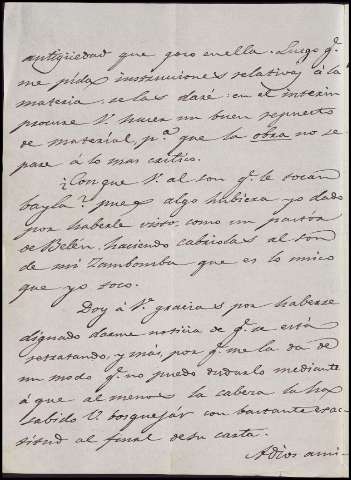 antigüedad que gozo en ella. Luego q.e
me pida instrucciones relativas á la
materia, se las daré: en el interin
procure V. hacer un buen repuesto
de material, p.a que la obra no se
pare á lo mas critico.
¿Con que V. al son q.e le tocan
bayla? pues algo hubiera yo dado
por haberle visto, como un pastor
de Belén, haciendo cabriolas al son
de mi Zambomba que es lo único
que yo toco.
Doy á V. gracias por haberse
dignado darme noticia de q.e se está
retratando, y más, por q.e me la da de
un modo q.e no puedo dudarlo mediante
á que al menos la cabeza la ha
sabido V. bosquejár con bastante exac-
titud al final de su carta.
Adios ami-